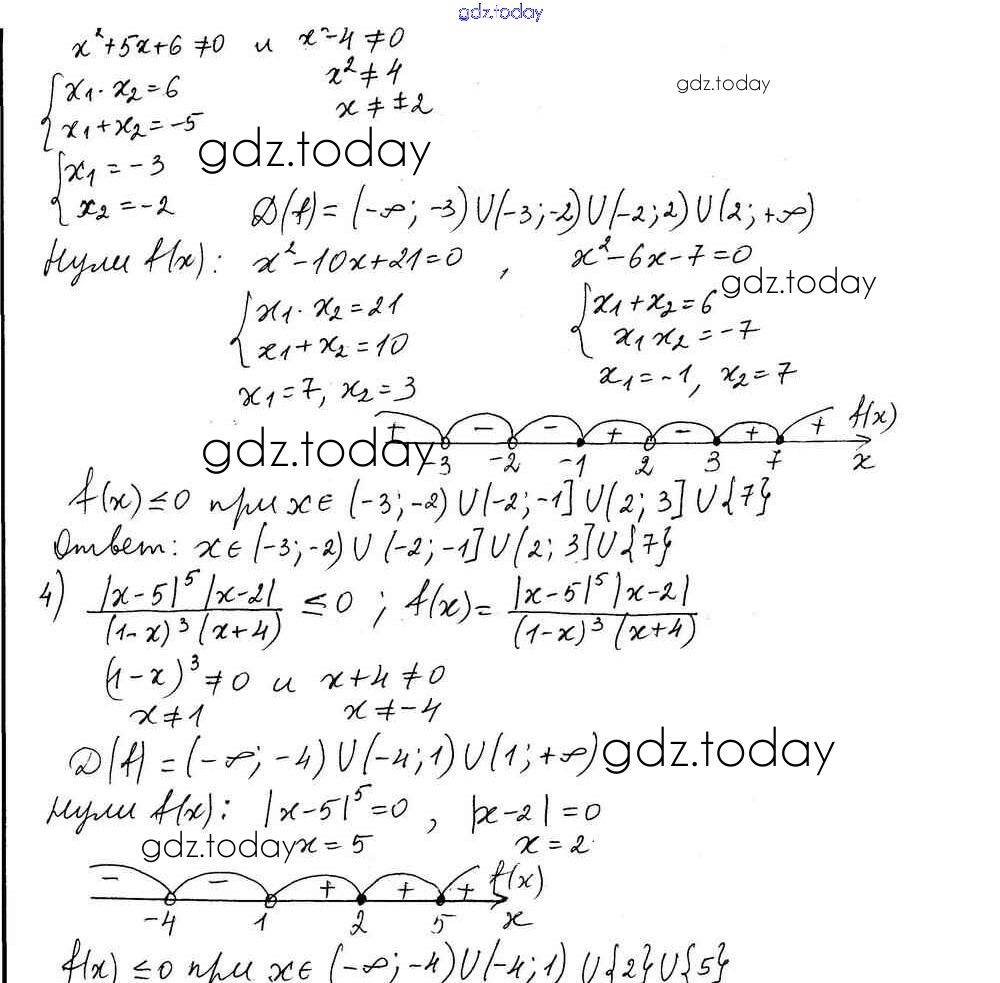 gdz.today
x²+5x+6≠0 и x²-4≠0
{x₁·x₂=6 x²≠4 gdz.today
x₁+x₂=-5 x≠±2
gdz.today
{x₁=-3
x₂=-2 D(f)=(-∞;-3)∪(-3;-2)∪(-2;2)∪(2;+∞)
Нули f(x): x²-10x+21=0, x²-6x-7=0
gdz.today
{x₁·x₂=21 {x₁+x₂=6
x₁+x₂=10 x₁x₂=-7
x₁=7, x₂=3 x₁=-1, x₂=7
+ - - + - + + f(x)
gdz.today
-3 -2 -1 2 3 7 x
f(x)≤0 при x∈(-3;-2)∪(-2;-1]∪(2;3]∪{7}
Ответ: x∈(-3;-2)∪(-2;-1]∪(2;3]∪{7}
4) |x-5|⁵|x-2| / (1-x)³(x+4) ≤0; f(x)= |x-5|⁵|x-2| / (1-x)³(x+4)
(1-x)³≠0 и x+4≠0
x≠1 x≠-4
D(f)=(-∞;-4)∪(-4;1)∪(1;+∞) gdz.today
Нули f(x): |x-5|⁵=0, |x-2|=0
gdz.today x=5 x=2
- - + + + f(x)
-4 1 2 5 x
f(x)≤0 при x∈(-∞;-4)∪(-4;1)∪{2}∪{5}